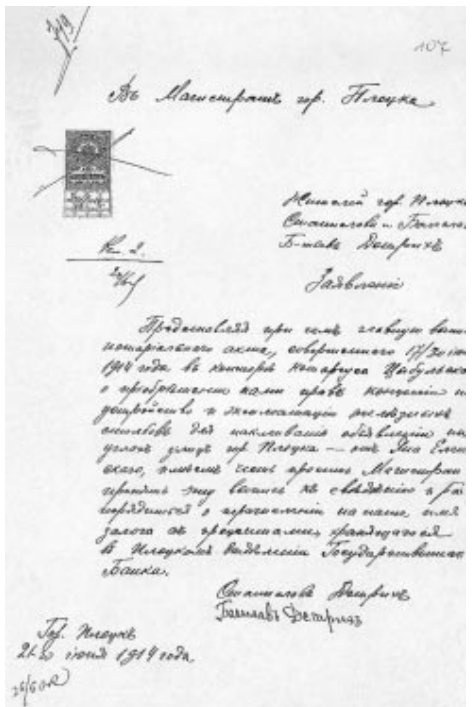 319
107
Въ Магистратъ гор. Плоцка
Жителей гор. Плоцка
Станислава и
Б-тьевъ Детрихъ
№ 2.
Заявленіе
Представляя при семъ главную
нотаріальнаго акта, совершеннаго 17/30
1914 года въ конторѣ Нотаріуса
о пріобрѣтеніи нами правъ концессіи
устройство и эксплоатацію желѣзныхъ
столбовъ для наклеиванія объявленій на
углахъ улицъ гор. Плоцка — отъ Яна
имѣемъ честь просить Магистратъ
принять эту къ свѣдѣнію и
порядиться о перечисленіи на наше имя
залога съ процентами, хранящагося
въ Плоцкомъ Государственнаго
Банка.
Станиславъ Детрихъ
Болеславъ Детрихъ
Гор. Плоцкъ
21-го іюня 1914 года